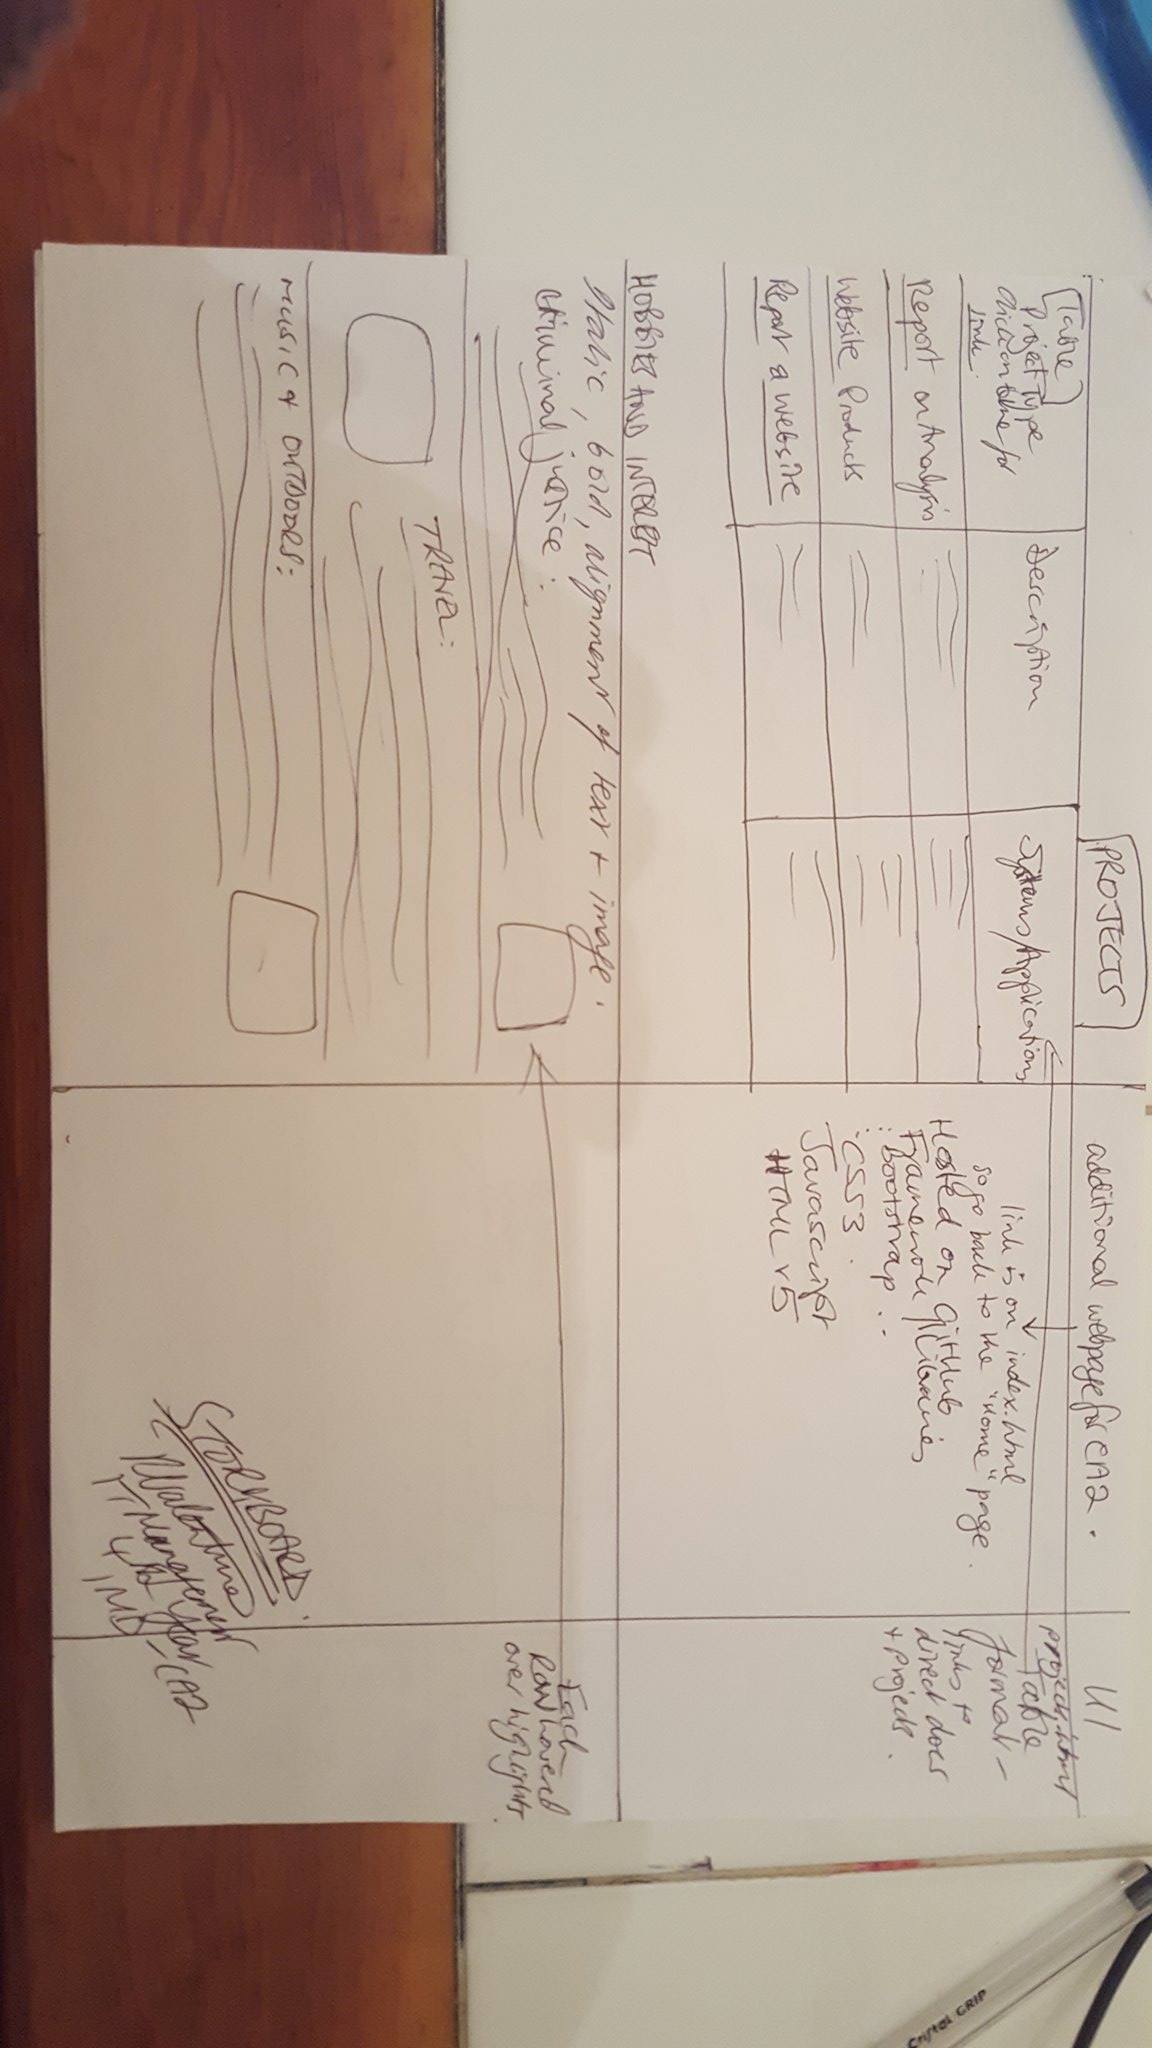 PROJECTS
additional webpage for CA2.
UI
Table
Project Type
Click on blue for
link.
Description
Systems/Applications
Report on Analysis
Website Products
Report & Website
link is on index.html
so go back to the "Home" page.
Hosted on GitHub.
Framework / Libraries
: Bootstrap ..
: CSS3.
Javascript
HTML v5
projects.html
Table
format -
links to
direct docs
+ Projects.
HOBBIES AND INTEREST
Italic, bold, alignment of text + image.
Criminal justice:
TRAVEL:
MUSIC & OUTDOORS:
Each
Row hovered
over highlights.
STORYBOARD.
RValentine
IT Management
4th Year
IMD-CA2
CRYSTAL GRIP